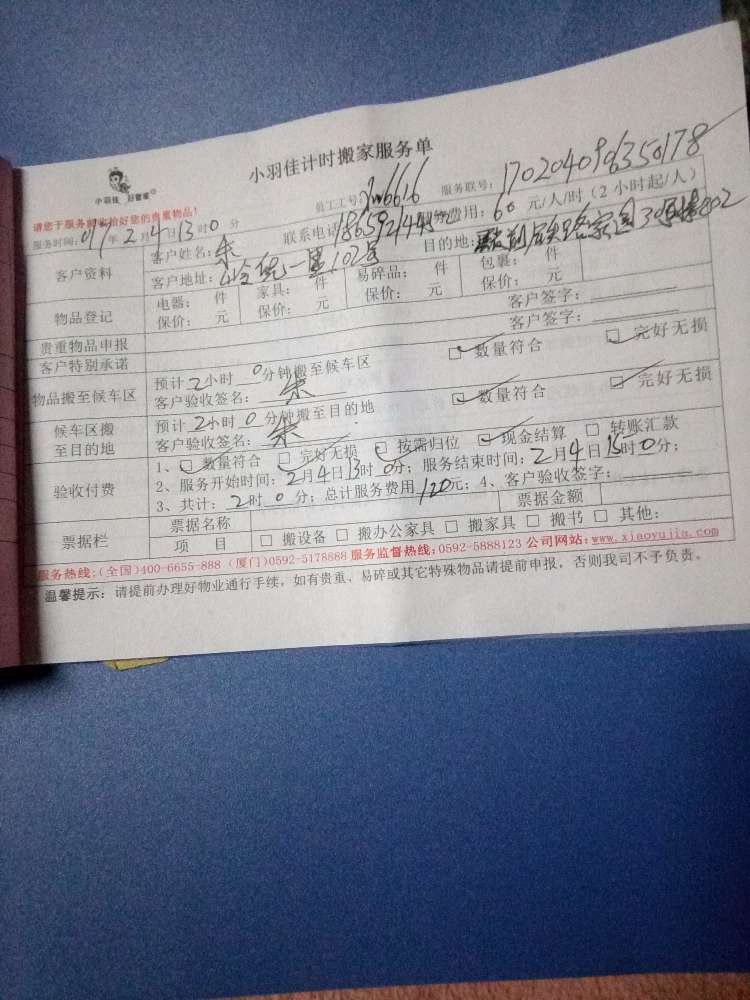 小羽佳 好管家
小羽佳计时搬家服务单
请您于服务前收拾好您的贵重物品！
员工工号： 6616 服务联号：
服务时间：年2月4日13时0分
客户资料
客户姓名：朱 联系电话 服务费用：60元/人/时（2小时起/人）
客户地址： 102号 目的地：
物品登记
电器： 件 家具： 件 易碎品： 件 包裹： 件
保价： 元 保价： 元 保价： 元 保价： 元
贵重物品申报 客户签字：
客户特别承诺 客户签字：
物品搬至候车区
预计2小时0分钟搬至候车区 数量符合 完好无损
客户验收签名：朱
候车区搬至目的地
预计2小时0分钟搬至目的地 数量符合 完好无损
客户验收签名：朱
验收付费
1、 数量符合 完好无损 按需归位 现金结算 转账汇款
2、服务开始时间：2月4日13时0分；服务结束时间：2月4日15时0分；
3、共计：2时0分；总计服务费用120元；4、客户验收签字：
票据栏
票据名称 票据金额
项 目 搬设备 搬办公家具 搬家具 搬书 其他：
服务热线：(全国)400-6655-888 (厦门)0592-5178888 服务监督热线：0592-5888123 公司网站：www.xiaoyujia.com
温馨提示：请提前办理好物业通行手续，如有贵重、易碎或其它特殊物品请提前申报，否则我司不予负责。